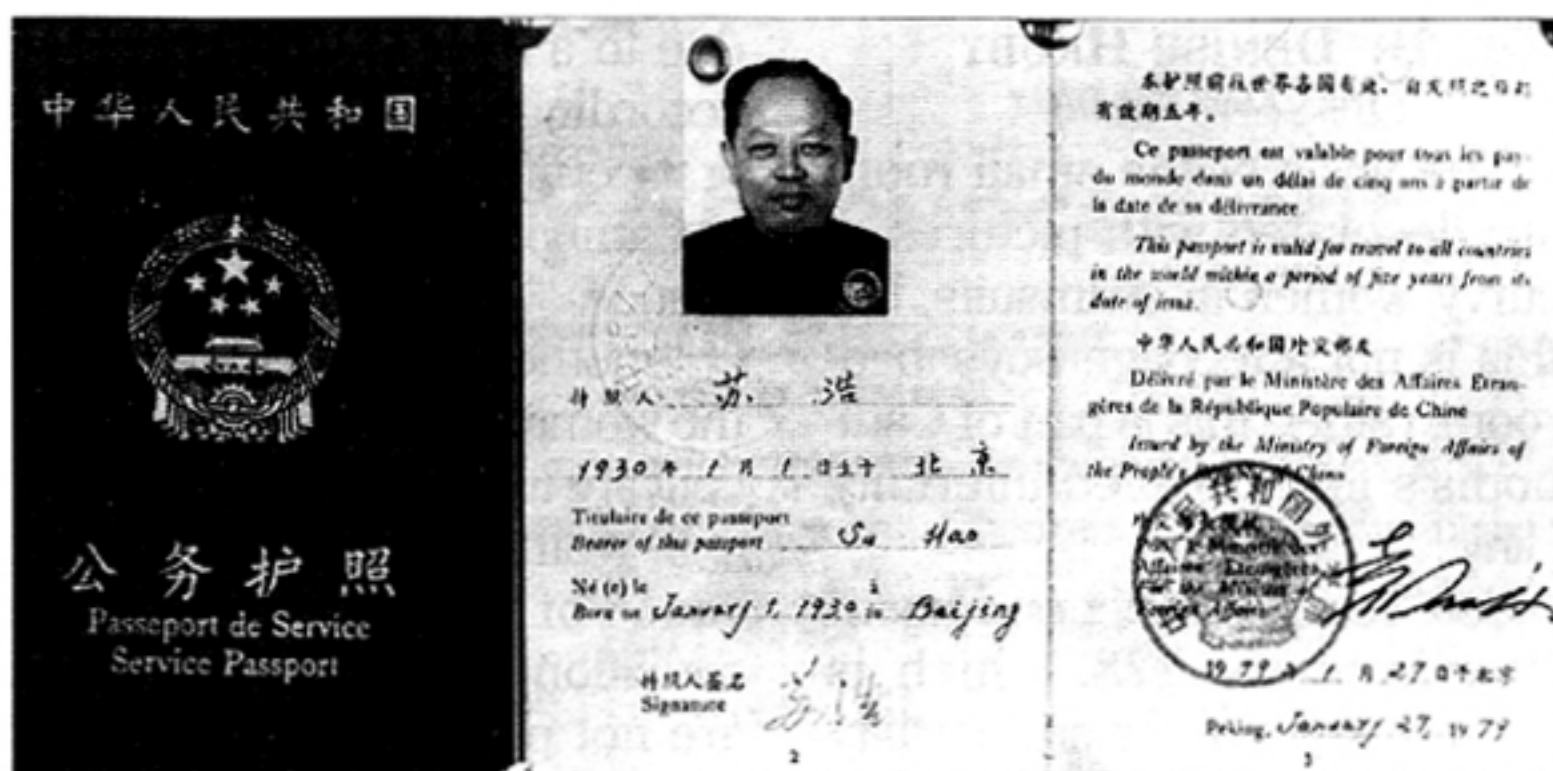 中华人民共和国
公务护照
Passeport de Service
Service Passport
持照人 苏 浩
1930年 1月 1日生于 北京
Titulaire de ce passeport
Bearer of this passport Su Hao
Né (e) le à
Born on January 1, 1930 in Beijing
持照人签名
Signature
2
本护照前往世界各国有效，自发照之日起
有效期五年。
Ce passeport est valable pour tous les pays
du monde dans un délai de cinq ans à partir de
la date de sa délivrance.
This passport is valid for travel to all countries
in the world within a period of five years from its
date of issue.
中华人民共和国外交部发
Délivré par le Ministère des Affaires Etran-
gères de la République Populaire de Chine
Issued by the Ministry of Foreign Affairs of
the People's of China
人民共和国外
Affaires Etrangères
For the Minister of
Foreign Affairs
1979年 1月 27日于北京
Peking, January 27, 1979
3